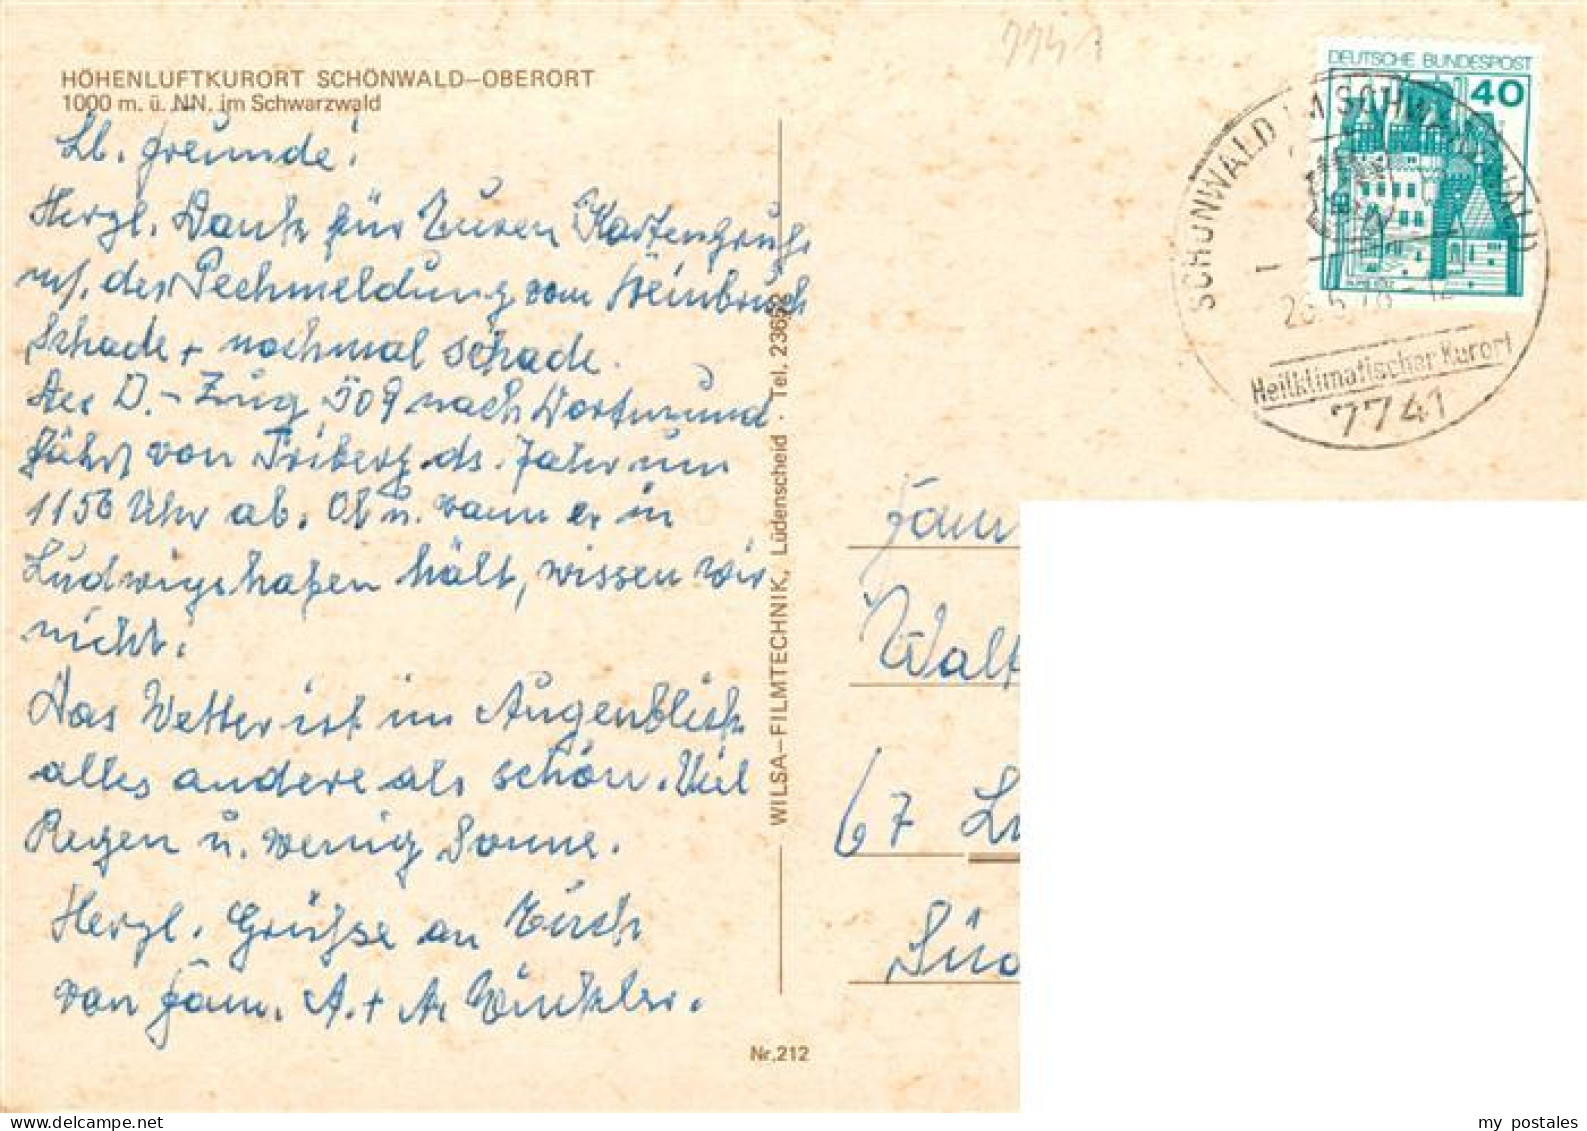 HÖHENLUFTKURORT SCHÖNWALD–OBERORT
1000 m. ü. NN. im Schwarzwald
Lb. Freunde!
Herzl. Dank für Euren Kartengruß
m/. der Pechmeldung vom
Schade + nochmal schade.
Der D.-Zug 509 nach Dortmund
fährt von Triberg ds. Jahr um
1156 Uhr ab. Ob u. wann er in
Ludwigshafen hält, wissen wir
nicht.
Das Wetter ist im Augenblick
alles andere als schön. Viel
Regen u. wenig Sonne.
Herzl. Grüße an Euch
von Fam. A. + A. Winkler.
WILSA–FILMTECHNIK, Lüdenscheid · Tel. 23652
Nr. 212
7741
DEUTSCHE BUNDESPOST
40
SCHÖNWALD IM SCHWARZWALD
Heilklimatischer Kurort
7741
Fam
Walt
67 Lu
Süd
my postales